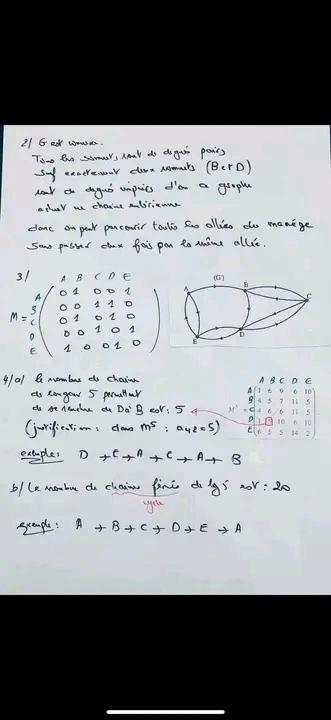 2/ G est connexe.
Tous les sommets sont de degrés pairs
sauf exactement deux sommets (B et D)
sont de degrés impairs d'où a graphe
admet une chaîne eulérienne
donc on peut parcourir toutes les allées de manège
sans passer deux fois par la même allée.
3/
A B C D E
M =
A 0 1 0 0 1
B 0 0 1 1 0
C 0 1 0 1 0
D 0 0 1 0 1
E 1 0 0 1 0
(G')
A B C D E
4/a) le nombre de chaîne
de longueur 5 permettant
de se rendre de D à B est : 5
(justification : dans M⁵ : a₄₂ = 5)
A B C D E
M⁵ =
A 1 6 9 6 10
B 4 5 7 11 5
C 4 6 6 11 5
D 10 6 10
E 6 5 5 14 2
exemple : D → E → A → E → A → B
b/ Le nombre de chaîne fermée de lg 5 est : 20
cycle
exemple : A → B → C → D → E → A